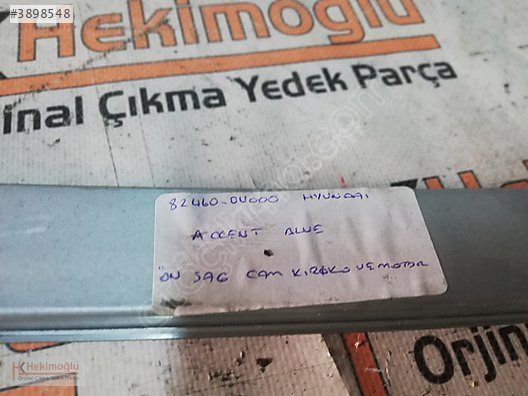 #3898548
Hekimoğlu
inal Çıkma Yedek Parça
82460-0U000 HYUNDAI
ACCENT BLUE
ÖN SAĞ CAM KİRİKO VE MOTOR
Orjin
Hekimoğlu